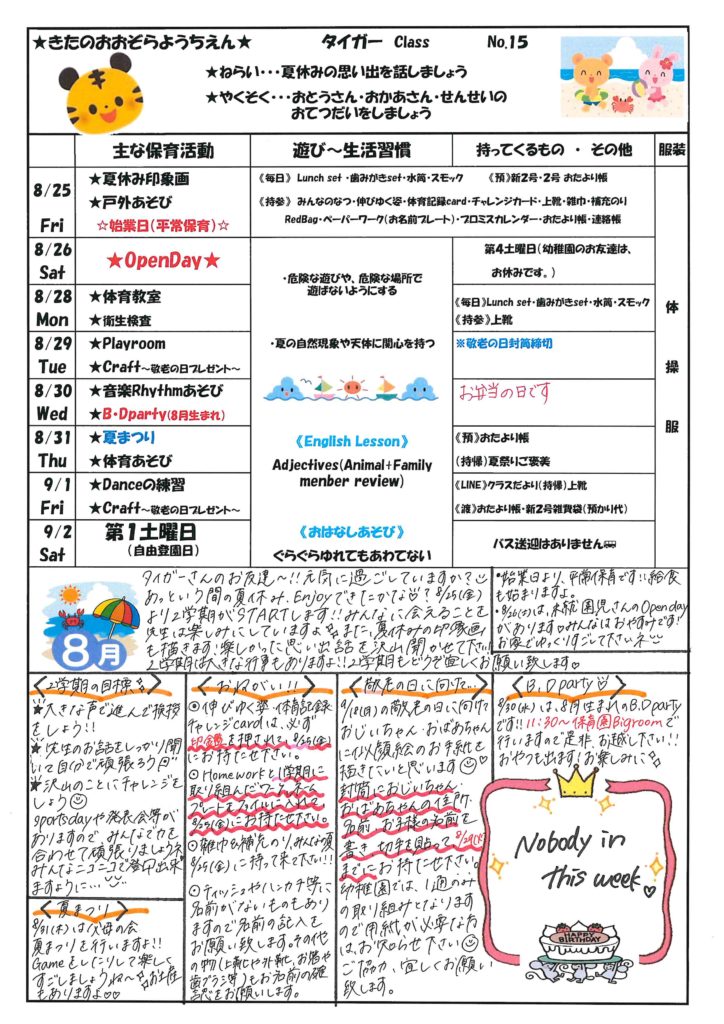 ★きたのおおぞらようちえん★ タイガー Class No.15
★ねらい・・・夏休みの思い出を話しましょう
★やくそく・・・おとうさん・おかあさん・せんせいの
おてつだいをしましょう
主な保育活動 遊び～生活習慣 持ってくるもの ・ その他 服装
8/25
Fri
★夏休み印象画
★戸外あそび
☆始業日(平常保育)☆
《毎日》 Lunch set ・歯みがきset・水筒・スモック 《預》新2号・2号 おたより帳
《持参》 みんなのなつ・伸びゆく姿・体育記録card・チャレンジカード・上靴・雑巾・補充のり
RedBag・ペーパーワーク(お名前プレート)・プロミスカレンダー・おたより帳・連絡帳
8/26
Sat
★OpenDay★
・危険な遊びや、危険な場所で
遊ばないようにする
第4土曜日(幼稚園のお友達は、
お休みです。)
8/28
Mon
★体育教室
★衛生検査
《毎日》Lunch set・歯みがきset・水筒・スモック
《持参》上靴
体操服
8/29
Tue
★Playroom
★Craft～敬老の日プレゼント～
・夏の自然現象や天体に関心を持つ
※敬老の日封筒締切
8/30
Wed
★音楽Rhythmあそび
★B・Dparty(8月生まれ)
お弁当の日です
8/31
Thu
★夏まつり
★体育あそび
《English Lesson》
Adjectives(Animal+Family
menber review)
《預》おたより帳
(持帰)夏祭りご褒美
9/1
Fri
★Danceの練習
★Craft～敬老の日プレゼント～
《LINE》クラスだより(持帰)上靴
《渡》おたより帳・新2号雑貨袋(預かり代)
9/2
Sat
第1土曜日
(自由登園日)
《おはなしあそび》
ぐらぐらゆれてもあわてない
バス送迎はありません
8月
タイガーさんのお友達～!!元気に過ごしていますか?
あっという間の夏休み、Enjoyできたかな♡? 8/25(金)
より2学期がSTARTします!!みんなに会えることを
先生は楽しみにしていますよ また、夏休みの印象画
も描きます!楽しかった思い出話を沢山聞かせて下さい!
2学期は大きな行事もありますよ!!2学期もどうぞ宜しくお願い致します。
・始業日より、平常保育です!!給食
も始まりますよ。
・8/26(土)は、未就園児さんのOpenday
があります♡みんなはおやすみです!
お家でゆっくりすごして下さいネ
<2学期の目標>
★大きな声で進んで挨拶
をしよう!!
★先生のお話をしっかり聞
いて自分で頑張ろう日
★沢山のことにチャレンジを
しよう
sportsdayや発表会等が
ありますので、みんなで力を
合わせて頑張りましょうネ
みんなニコニコで登園出来
ますように…
<夏まつり>
8/31(木)は父母の会
夏まつりを行いますよ!!
Gameをしたりして楽しく
すごしましょうね～ お土産
もありますよ♡♡
<おねがい!!>
◎伸びゆく姿、体育記録
チャレンジcardは、必ず
印鑑を押されて、8/25(金)
にお持ち下さい。
◎Homeworkと1学期に
取り組んだワーク、ネーム
プレートをファイルに入れて
8/25(金)にお持たせ下さい。
◎雑巾と補充のり、みんなの夏
8/25(金)に持って来て下さい!!
◎ティッシュやハンカチ等に
名前がないものもあり
ますので名前の記入を
お願い致します。その他
の物(上靴や外靴、お箸や
歯ブラシ等)もお名前の確
認をお願いします。
<敬老の日に向けて…>
9/18(月)の敬老の日に向けた
おじいちゃん・おばあちゃん
に似顔絵のお手紙を
描きたいと思います
封筒におじいちゃん・
おばあちゃんの住所・
名前、お子様の名前を
書き、切手を貼って8/29(火)
までにお持たせ下さい。
幼稚園では、1通のみ
の取り組みとなります
ので用紙が必要な方
は、お知らせ下さい
ご協力、宜しくお願い
致します。
<B.Dparty♡>
8/30(水)は、8月生まれのB.Dparty
です!! 11:30～保育園Bigroomで
行いますので是非、お越し下さい!!
おやつも出ます!お楽しみに
Nobody in
this week♡
HAPPY
BIRTHDAY